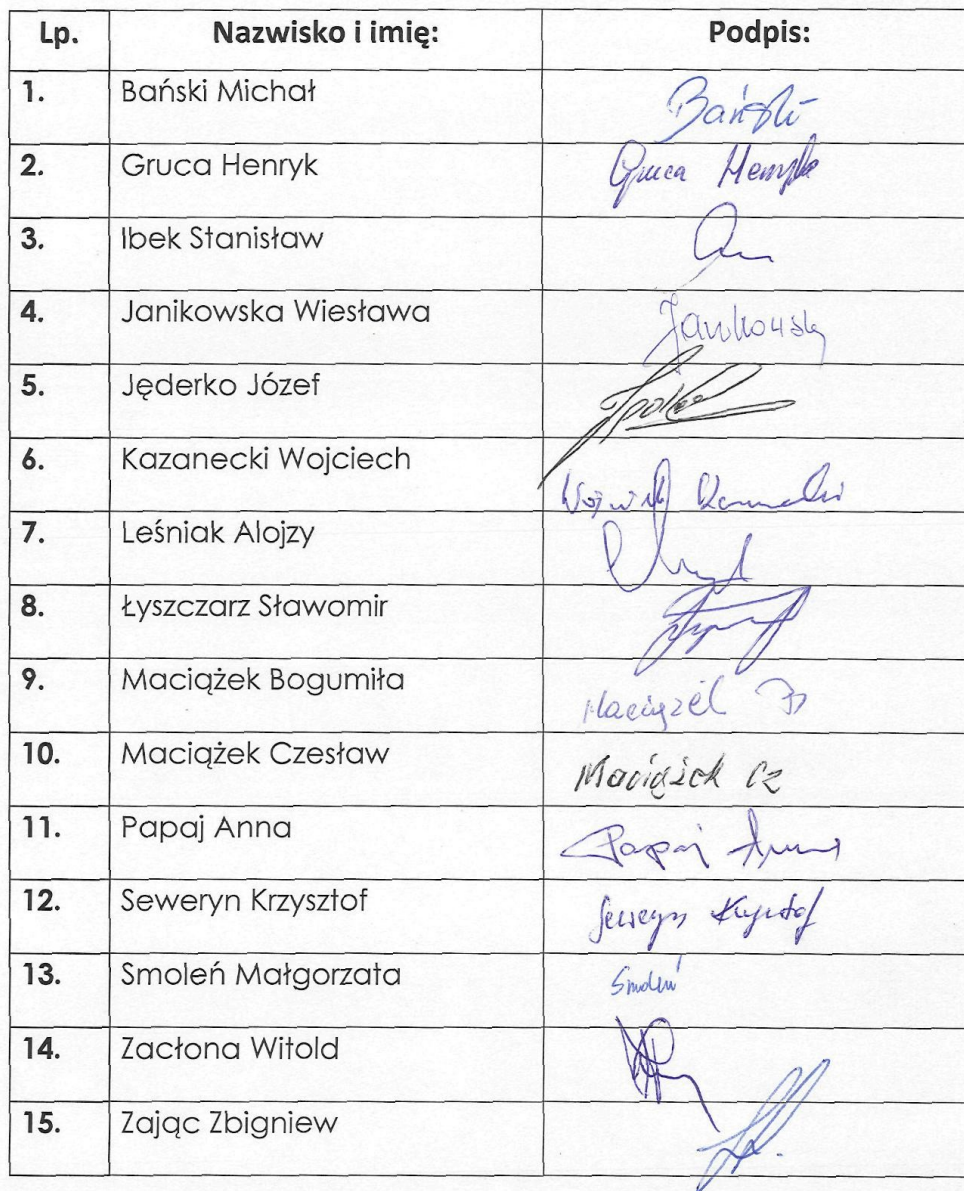 Lp. Nazwisko i imię: Podpis:
1. Bański Michał Bański
2. Gruca Henryk Gruca Henryk
3. Ibek Stanisław
4. Janikowska Wiesława Janikowska
5. Jęderko Józef
6. Kazanecki Wojciech
7. Leśniak Alojzy
8. Łyszczarz Sławomir
9. Maciążek Bogumiła Maciążek B
10. Maciążek Czesław Maciążek Cz
11. Papaj Anna Papaj Anna
12. Seweryn Krzysztof Seweryn Krzysztof
13. Smoleń Małgorzata Smoleń
14. Zacłona Witold
15. Zając Zbigniew